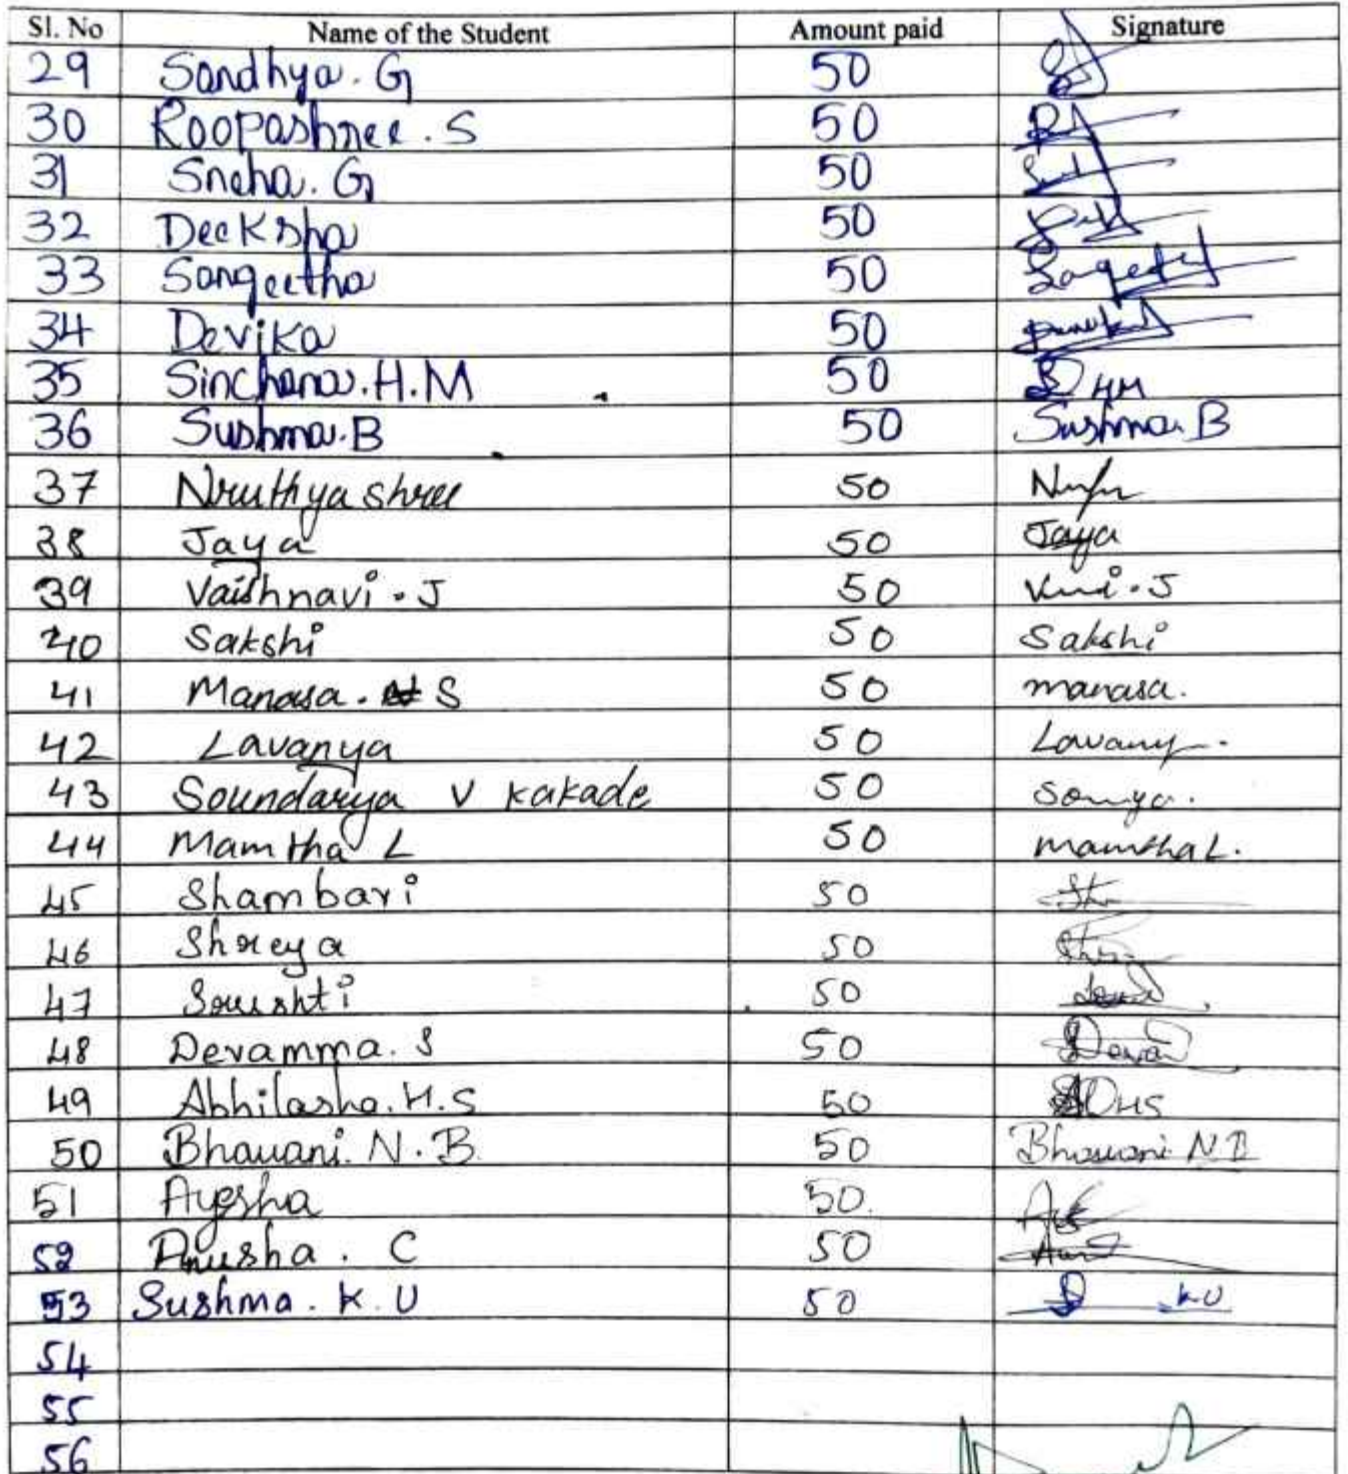 Sl. No Name of the Student Amount paid Signature
29 Sandhya. G 50
30 Roopashree. S 50
31 Sneha. G 50
32 Deeksha 50
33 Sangeetha 50
34 Devika 50
35 Sinchana. H. M 50 HM
36 Sushma. B 50 Sushma. B
37 Nruthyashree 50
38 Jaya 50 Jaya
39 Vaishnavi. J 50
40 Sakshi 50 Sakshi
41 Manasa. S 50 manasa.
42 Lavanya 50
43 Soundarya V Kakade 50
44 Mamtha L 50 mamtha L.
45 Shambavi 50
46 Shreya 50
47 Srushti 50
48 Devamma. S 50
49 Abhilasha. H. S 50
50 Bhavani. N. B. 50 Bhavani N B
51 Ayesha 50.
52 Anusha. C 50
53 Sushma. K. U 50 K.U
54
55
56